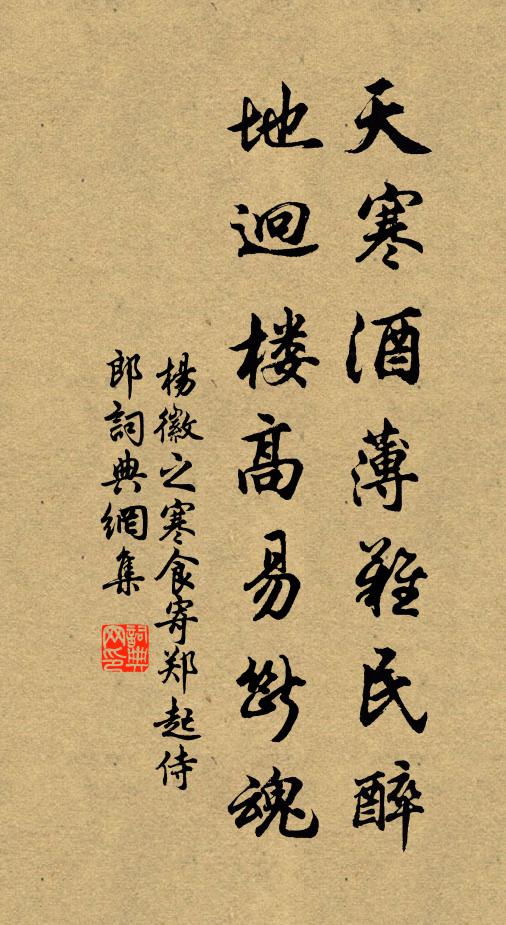 天寒酒薄難民醉
地迥楼高易斷魂
楊徽之寒食寄郑起侍
郎詞典網集
詞典
网印